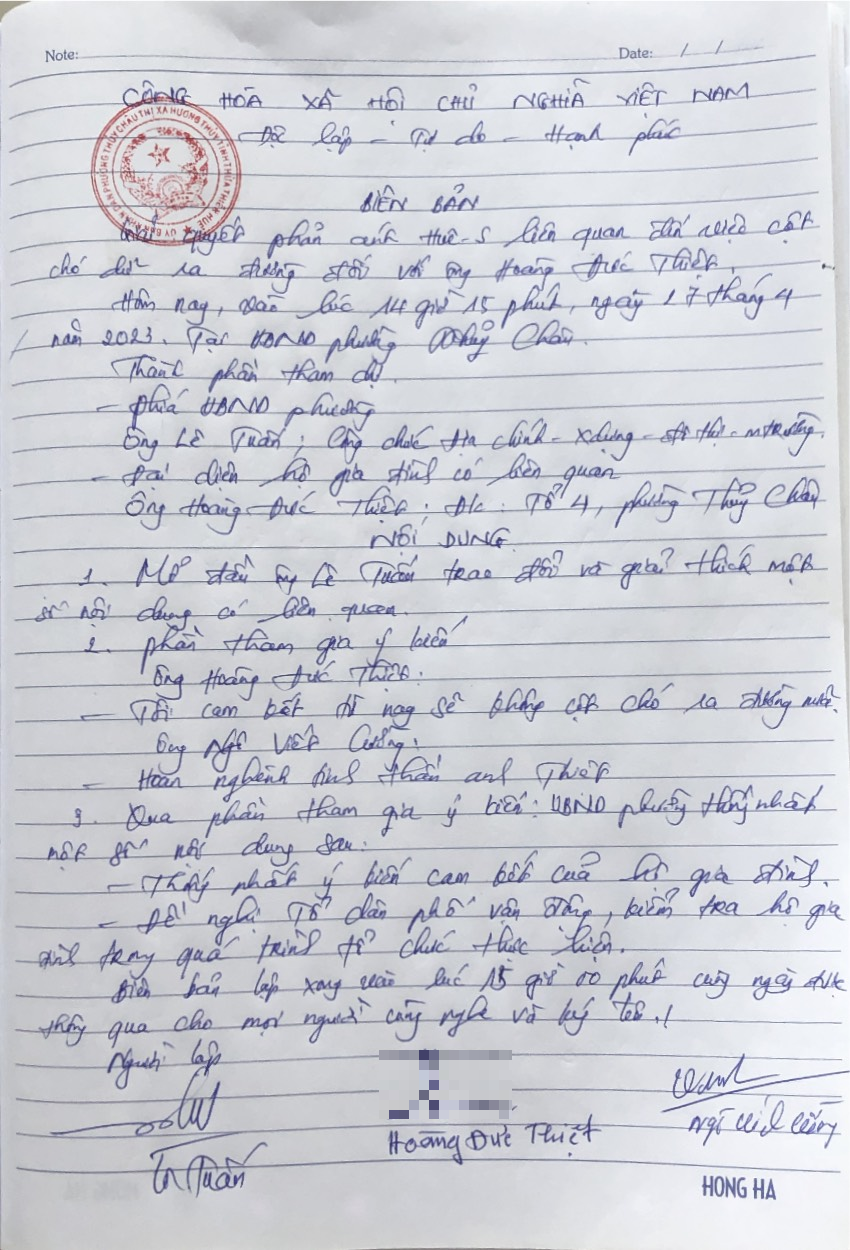 Note:
Date: / /
CỘNG HÒA XÃ HỘI CHỦ NGHĨA VIỆT NAM
Độc lập - Tự do - Hạnh phúc
ỦY BAN NHÂN DÂN PHƯỜNG THỦY CHÂU THỊ XÃ HƯƠNG THỦY TỈNH THỪA THIÊN HUẾ
BIÊN BẢN
Giải quyết phản ánh Huế-S liên quan đến việc cột
chó dữ ra đường đối với ông Hoàng Đức Thiệt.
Hôm nay, vào lúc 14 giờ 15 phút, ngày 17 tháng 4
năm 2023. Tại UBND phường Thủy Châu.
Thành phần tham dự.
- Phía UBND phường
Ông Lê Tuấn; Công chức địa chính - xdựng - đô thị - mtrường.
- Đại diện hộ gia đình có liên quan
Ông Hoàng Đức Thiệt. Đ/c: Tổ 4, phường Thủy Châu
NỘI DUNG
1. Mở đầu ông Lê Tuấn trao đổi và giải thích một
số nội dung có liên quan.
2. phần tham gia ý kiến
Ông Hoàng Đức Thiệt:
- Tôi cam kết từ nay sẽ không cột chó ra đường nữa.
Ông Ngô Viết Cường:
- Hoan nghênh tinh thần anh Thiệt
3. Qua phần tham gia ý kiến: UBND phường thống nhất
một số nội dung sau:
- Thống nhất ý kiến cam kết của hộ gia đình.
- Đề nghị Tổ dân phố vận động, kiểm tra hộ gia
đình trong quá trình tổ chức thực hiện.
Biên bản lập xong vào lúc 15 giờ 00 phút cùng ngày được
thông qua cho mọi người cùng nghe và ký tên./
Người lập
Hoàng Đức Thiệt
Ngô Viết Cường
Lê Tuấn
HONG HA